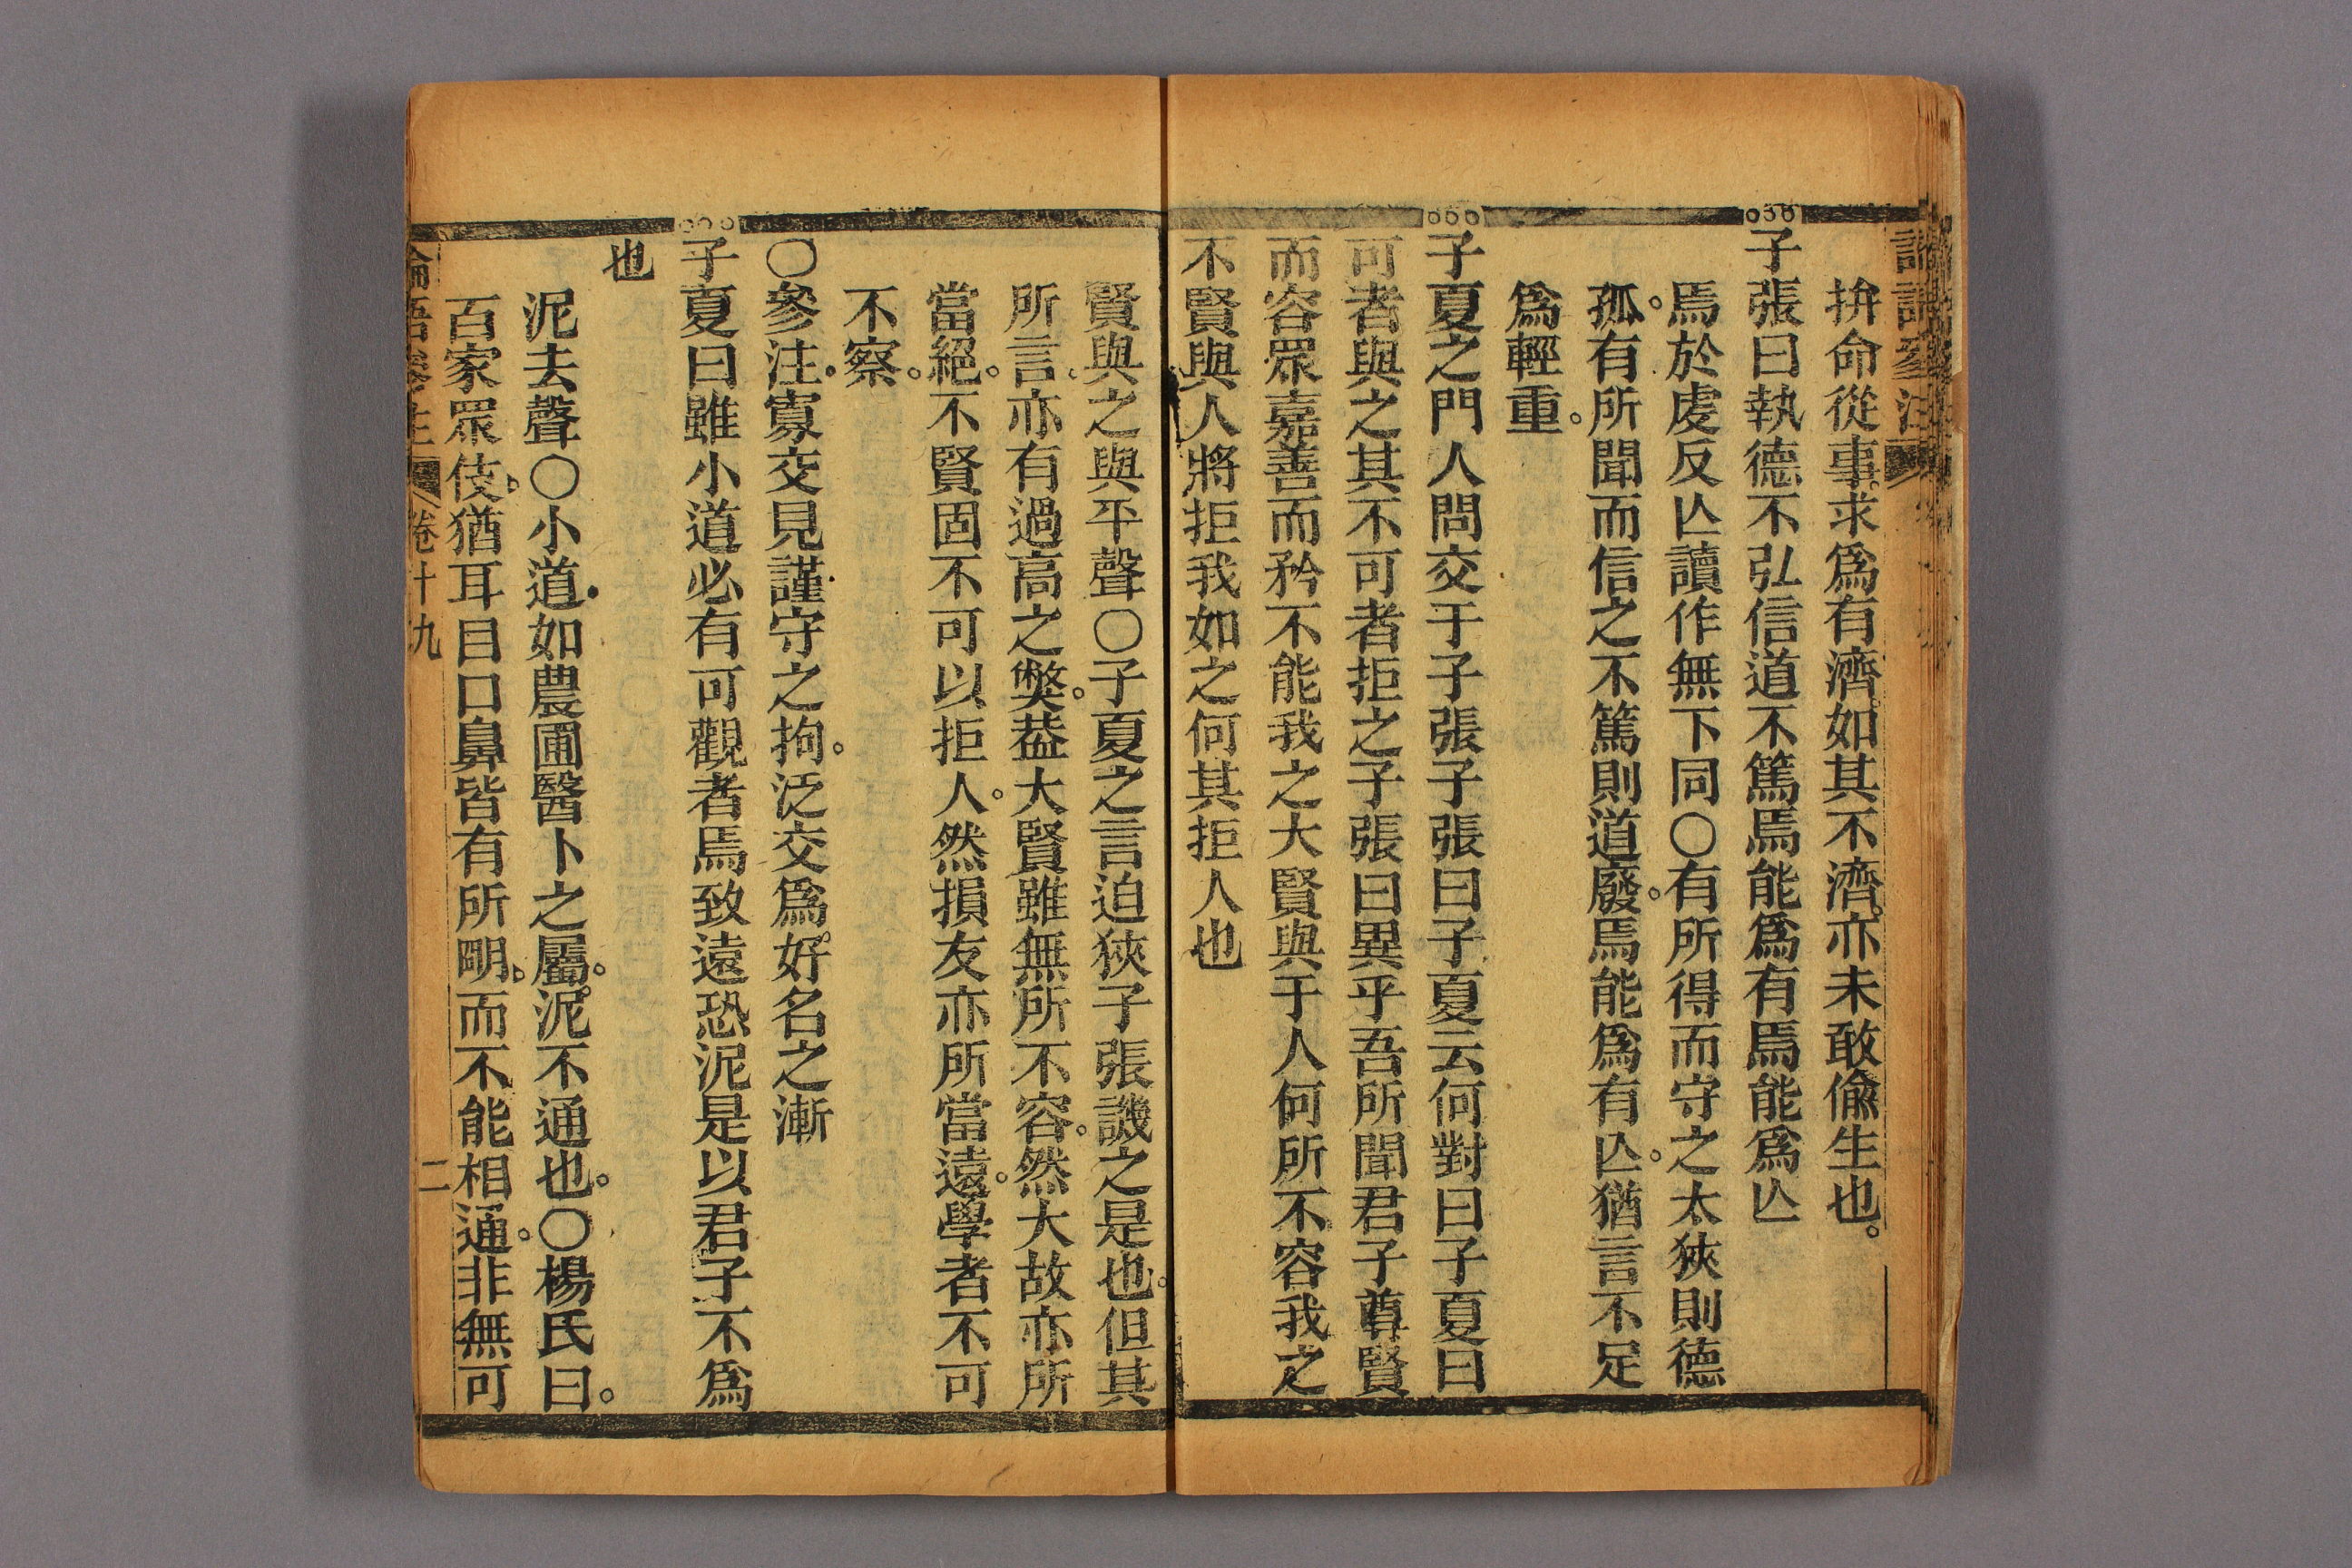 拚命從事。求爲有濟。如其不濟。亦未敢偸生也。
子張曰執德不弘信道不篤焉能爲有焉能爲亾
焉於虔反亾讀作無下同〇有所得而守之太狹則德
孤。有所聞而信之不篤則道廢。焉能爲有亾。猶言不足
爲輕重。
子夏之門人問交于子張子張曰子夏云何對曰子夏曰
可者與之其不可者拒之子張曰異乎吾所聞君子尊賢
而容眾嘉善而矜不能我之大賢與于人何所不容我之
不賢與人將拒我如之何其拒人也
賢與之與平聲〇子夏之言迫狹子張譏之是也。但其
所言、亦有過高之獘。葢大賢雖無所不容。然大故亦所
當絕。不賢固不可以拒人。然損友亦所當遠。學者不可
不察。
〇參注寡交見謹守之拘。泛交爲好名之漸
子夏曰雖小道必有可觀者焉致遠恐泥是以君子不爲
也
泥去聲〇小道如農圃醫卜之屬。泥不通也。〇楊氏曰。
百家眾伎猶耳目口鼻皆有所明。而不能相通。非無可
論語參注 卷十九 二